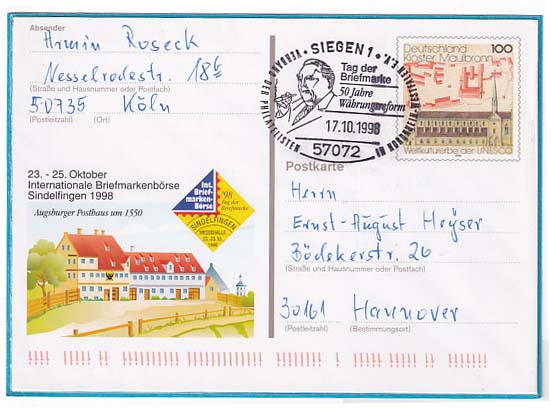 Absender
Armin Roseck
Nesselrodestr. 18b
(Straße und Hausnummer oder Postfach)
50735 Köln
(Postleitzahl) (Ort)
SIEGEN 1
Tag der
Briefmarke
50 Jahre
Währungsreform
17.10.1998
57072
Deutschland 100
Kloster Maulbronn
Weltkulturerbe der UNESCO
23. - 25. Oktober
Internationale Briefmarkenbörse
Sindelfingen 1998
Augsburger Posthaus um 1550
Int.
Brief-
marken-
Börse
'98
Tag der
Briefmarke
SINDELFINGEN
MESSEHALLE
1998
Postkarte
Herrn
Ernst-August Heyser
Bödekerstr. 26
(Straße und Hausnummer oder Postfach)
30161 Hannover
(Postleitzahl) (Bestimmungsort)